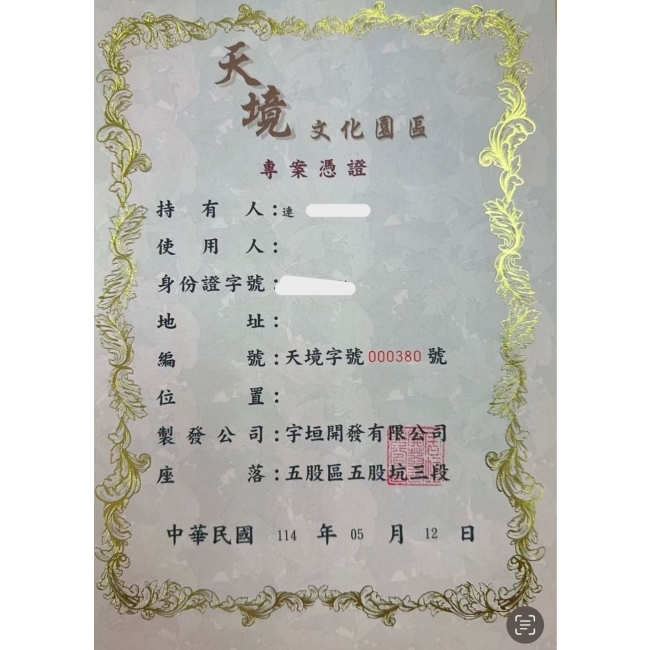 天境文化園區
專案憑證
持有人：連
使用人：
身份證字號：
地址：
編號：天境字號000380號
位置：
製發公司：宇垣開發有限公司
座落：五股區五股坑三段
中華民國 114 年 05 月 12 日